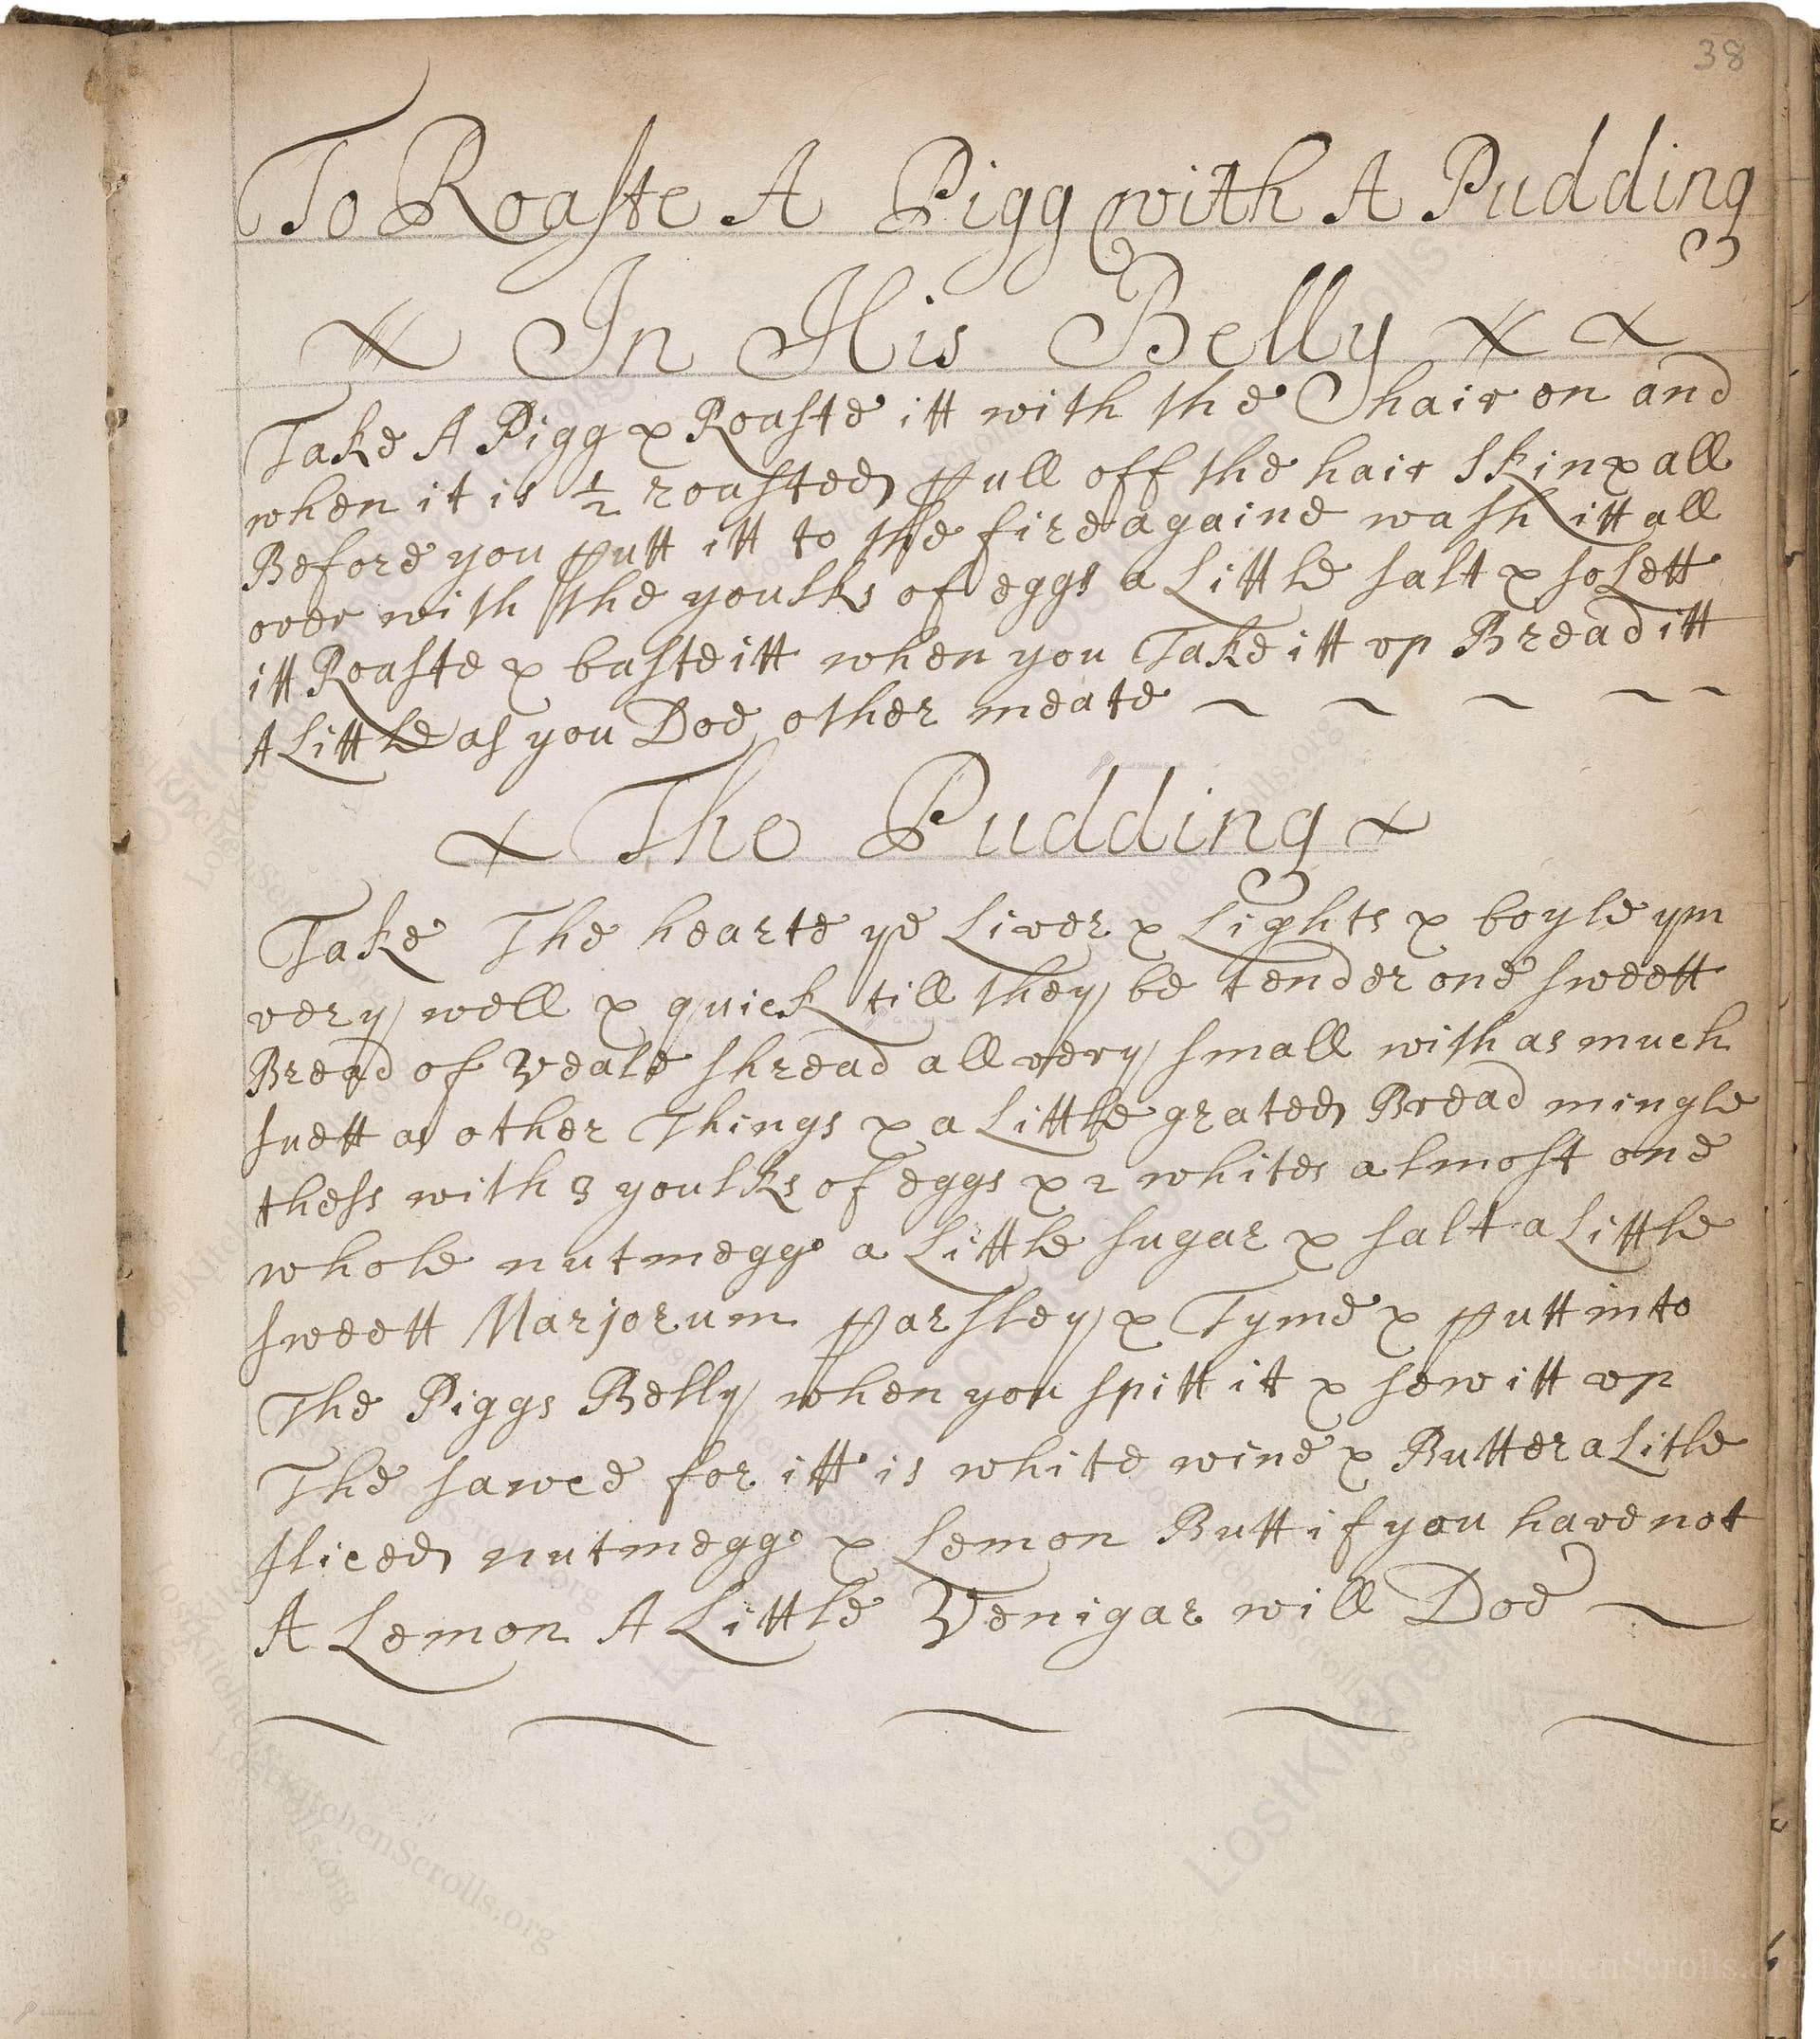 38
To Roaste A Pigg with A Pudding
In His Belly
Take A Pigg & Roaste itt with the hair on and
when it is ½ roasted pull off the hair skin & all
Before you putt itt to the fire againe wash itt all
over with the youlks of eggs a Little salt & so Lett
itt Roaste & baste itt when you Take itt vp Bread itt
A Little as you Doe other meate
The Pudding
Take The hearte ye Liver & Lights & boyle ym
very well & quick till they be tender one sweett
Bread of Veale shread all very small with as much
suett as other Things & a Little grated Bread mingle
thess with 3 youlks of eggs & 2 whites almost one
whole nutmegg a Little sugar & salt a Little
sweett Marjorum parsley & Tyme & putt into
The Piggs Belly when you spitt it & sow itt vp
The sawce for itt is white wine & Butter a Litle
sliced nutmegg & Lemon Butt if you have not
A Lemon A Little Venigar will Doe
LostKitchenScrolls.org